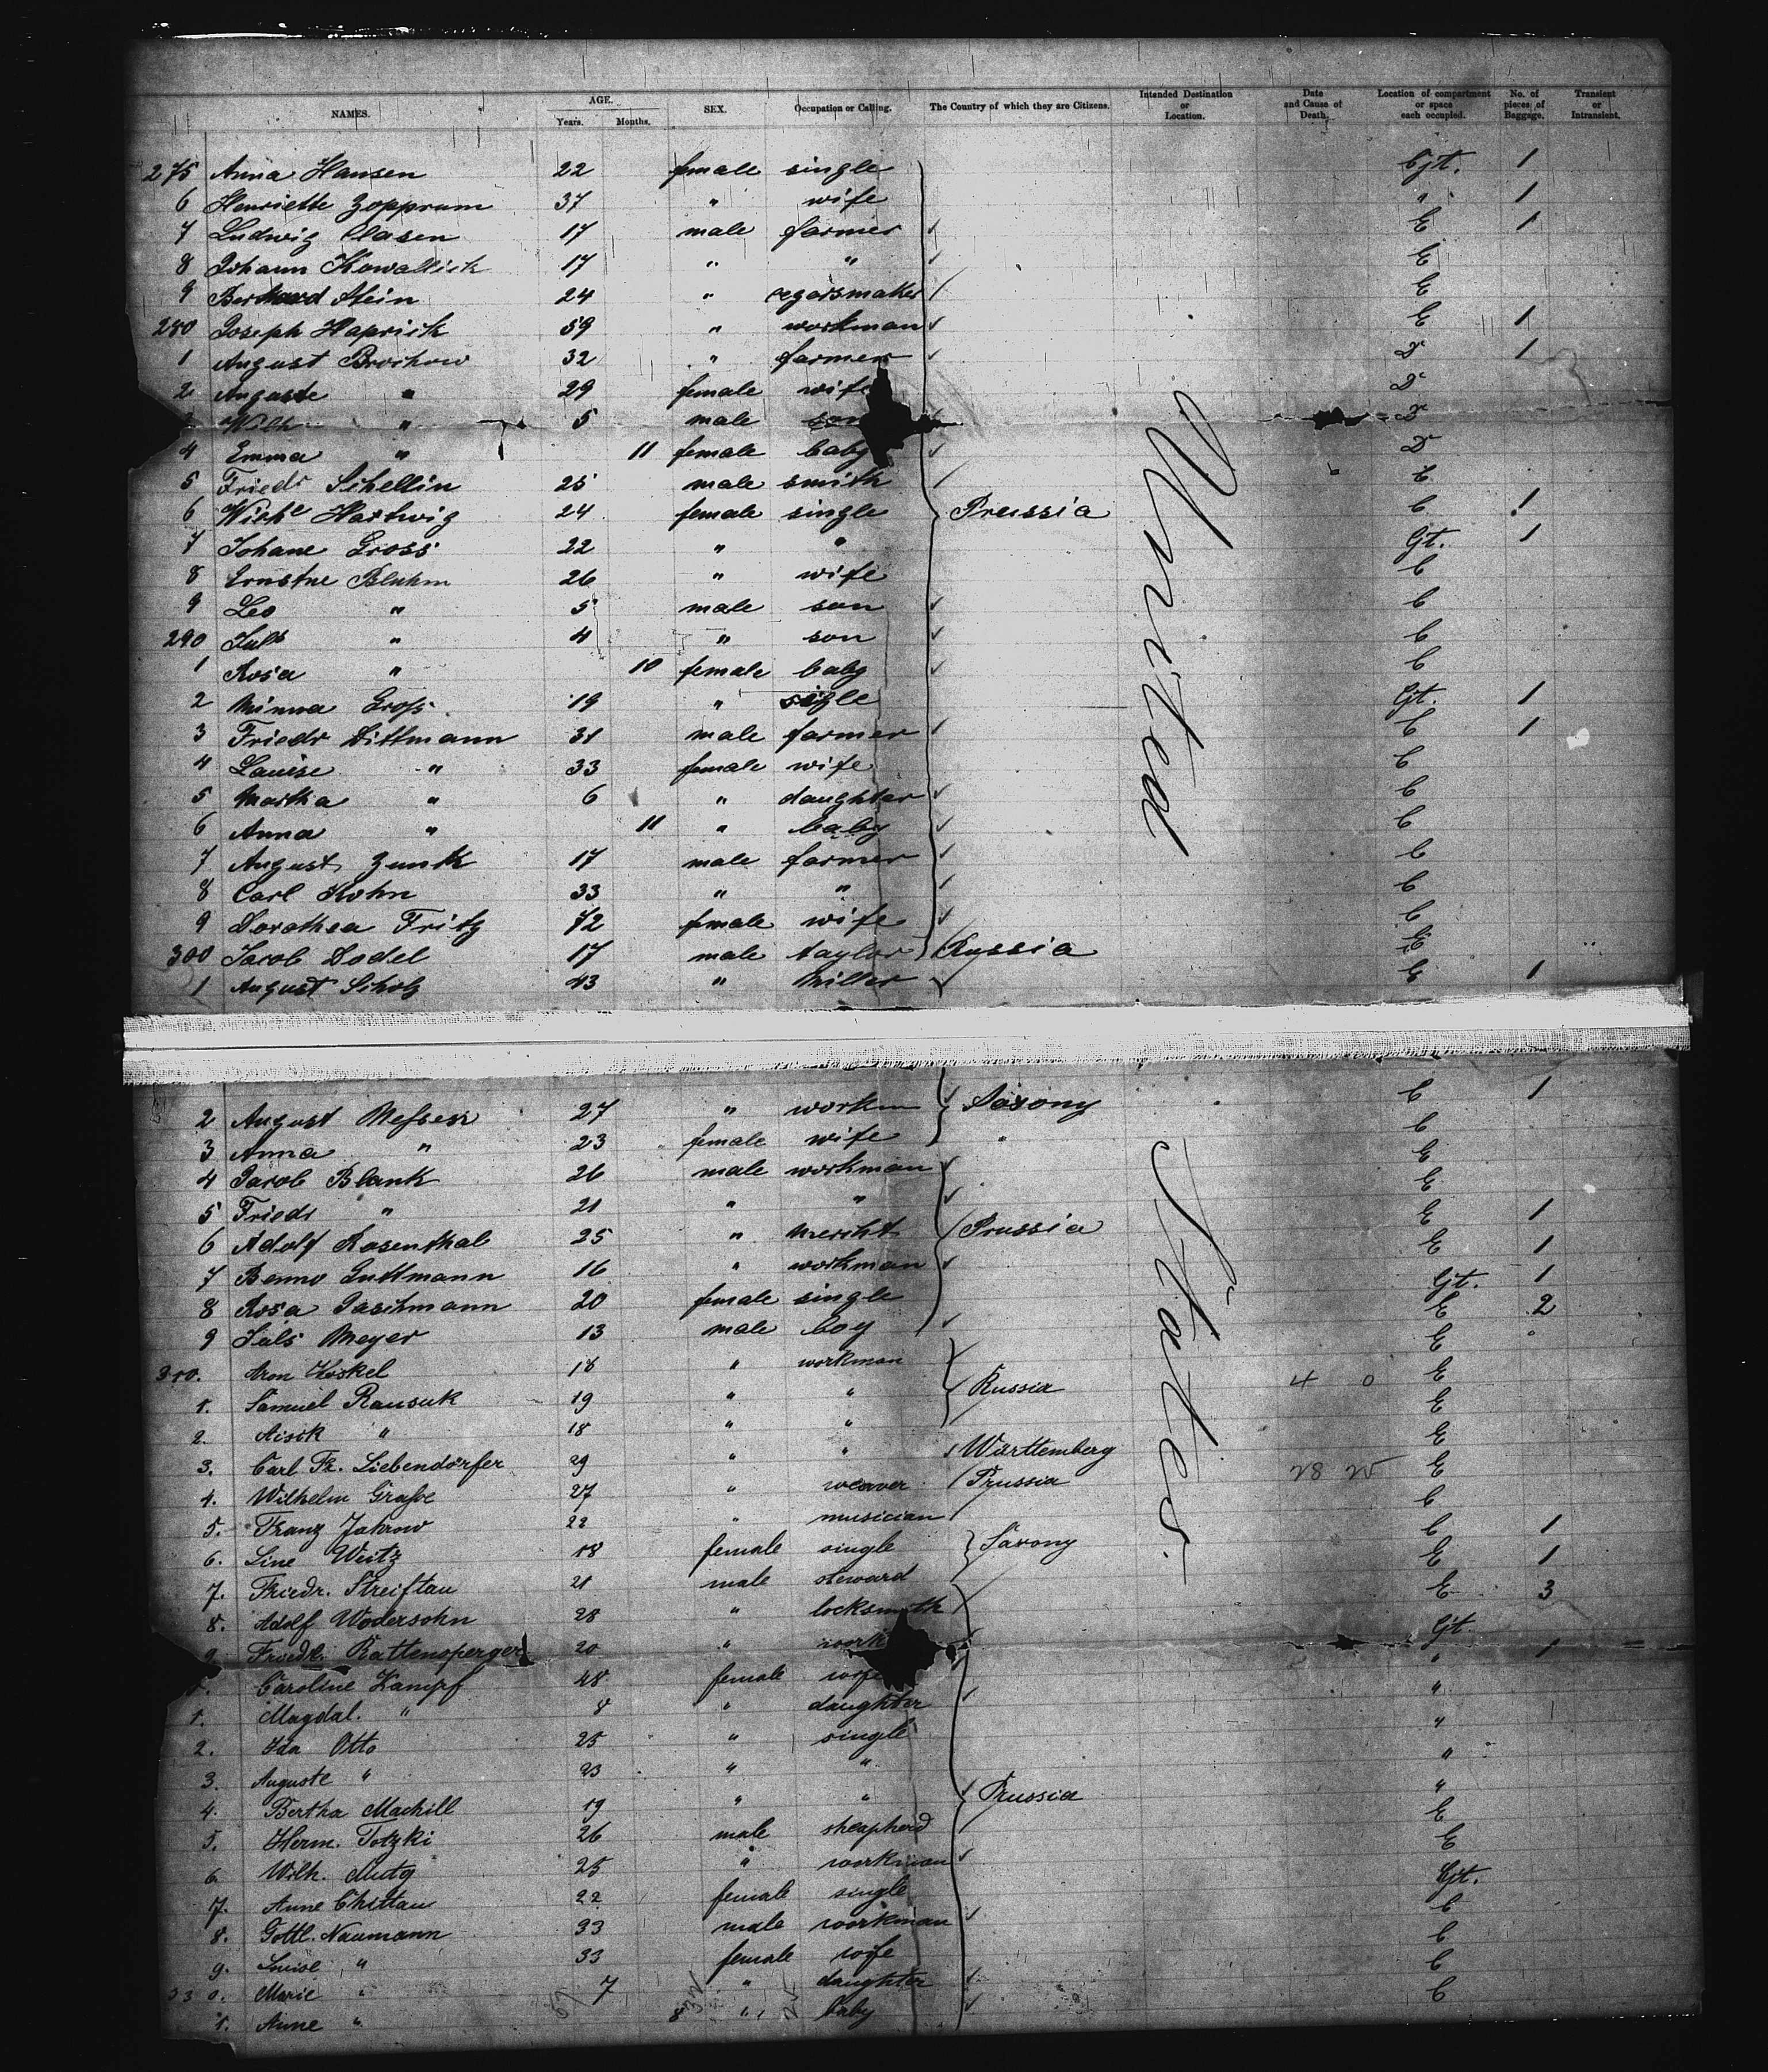 NAMES. AGE. Years. Months. SEX. Occupation or Calling. The Country of which they are Citizens. Intended Destination or Location. Date and Cause of Death. Location of compartment or space each occupied. No. of pieces of Baggage. Transient or Intransient.
275 Anna Hansen 22 female single Gjt. 1
6 Henriette Zopprum 37 " wife " 1
7 Ludwig Clasen 17 male farmer E 1
8 Johann Kowallick 17 " " E
9 Bernhard Stein 24 " segarsmaker E
280 Joseph Haprich 59 " workman E 1
1 August Brochow 32 " farmer D 1
2 Auguste " 29 female wife D
3 Wilh " 5 male son D
4 Emma " 11 female baby D
5 Friedr Schellin 25 male smith E
6 Wilhe Hartwig 24 female single Prussia C 1
7 Johane Gross 22 " " Gjt. 1
8 Ernstne Bluhm 26 " wife C
9 Leo " 5 male son C
290 Juls " 4 " son C
1 Rosa " 10 female baby C
2 Minna Gross 19 " sigle Gjt. 1
3 Friedr Dittmann 31 male farmer C 1
4 Louise " 33 female wife C
5 Martha " 6 " daughter C
6 Anna " 11 " baby C
7 August Zunk 17 male farmer C
8 Carl Kohn 33 " " C
9 Dorothea Fritz 72 female wife C
300 Jacob Dodel 17 male taylor Russia E
1 August Scholz 43 " miller E 1
United
2 August Messer 27 " workm Saxony C 1
3 Anna " 23 female wife " C
4 Jacob Blank 26 male workman E
5 Friedr " 21 " " E
6 Adolf Rosenthal 25 " mercht Prussia E 1
7 Benno Guttmann 16 " workman E 1
8 Rosa Paschmann 20 female single Gjt. 1
9 Juls Meyer 13 male boy E 2
310. Aron Heskel 18 " workman E
1. Samuel Ransuk 19 " " Russia 4 0 E
2. Aisik " 18 " " E
3. Carl Fr. Liebendörfer 29 " " Württemberg E
4. Wilhelm Grasse 27 " weaver Prussia 28 25 E
5. Franz Jahrow 22 " musician C
6. Line Weitz 18 female single Saxony C 1
7. Friedr. Streiftau 21 male steward E 1
8. Adolf Wodersohn 28 " locksmith E 3
9. Friedr. Rattensperger 20 " work Gjt.
Caroline Kampf 48 female wife " 1
1. Magdal. " 8 " daughter "
2. Ida Otto 25 " single "
3. Auguste " 23 " " "
4. Bertha Machill 19 " " Prussia "
5. Herm. Totzki 26 male sheapherd E
6. Wilh. Mutz 25 " workman E
7. Anne Chittau 22 female single Gjt.
8. Gottl. Naumann 33 male workman C
9. Louise " 33 female wife C
330. Marie " 7 " daughter C
1. Anne " 8 " baby C
States.